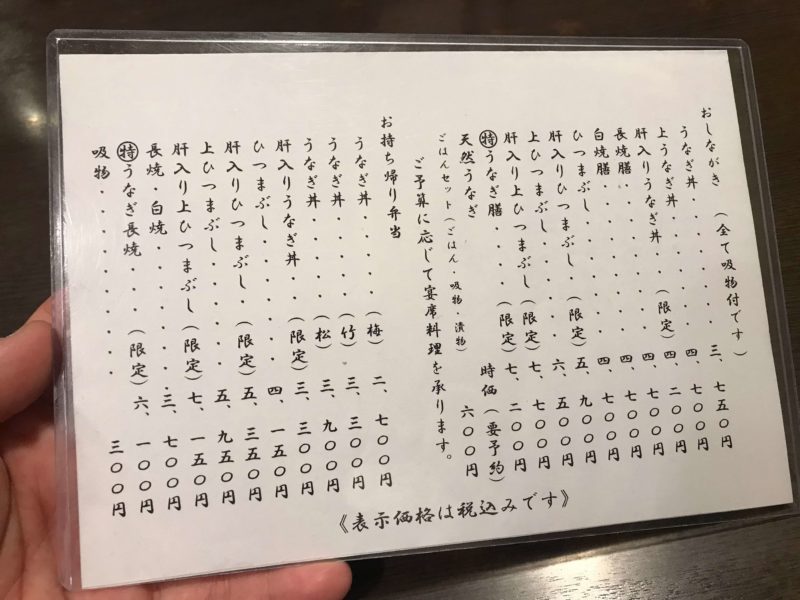 おしながき (全て吸物付です)
うなぎ丼・・・・・・・三、七五〇円
上うなぎ丼・・・・・・四、七〇〇円
肝入りうなぎ丼・(限定)四、二〇〇円
長焼膳・・・・・・・・四、七〇〇円
白焼膳・・・・・・・・四、七〇〇円
ひつまぶし・・・・・・四、七〇〇円
肝入りひつまぶし・(限定)五、九〇〇円
上ひつまぶし・・・・・六、五〇〇円
肝入り上ひつまぶし(限定)七、七〇〇円
㊕うなぎ膳・・・(限定)七、二〇〇円
天然うなぎ 時価(要予約)
ごはんセット(ごはん・吸物・漬物) 六〇〇円
ご予算に応じて宴席料理を承ります。
お持ち帰り弁当
うなぎ丼・・・・・(梅)二、七〇〇円
うなぎ丼・・・・・(竹)三、三〇〇円
うなぎ丼・・・・・(松)三、九〇〇円
肝入りうなぎ丼・・(限定)三、三〇〇円
ひつまぶし・・・・・・四、一五〇円
肝入りひつまぶし・(限定)五、三五〇円
上ひつまぶし・・・・・五、九五〇円
肝入り上ひつまぶし(限定)七、一五〇円
長焼・白焼・・・・・・三、七〇〇円
㊕うなぎ長焼・・(限定)六、一〇〇円
吸物・・・・・・・・・三〇〇円
《表示価格は税込みです》